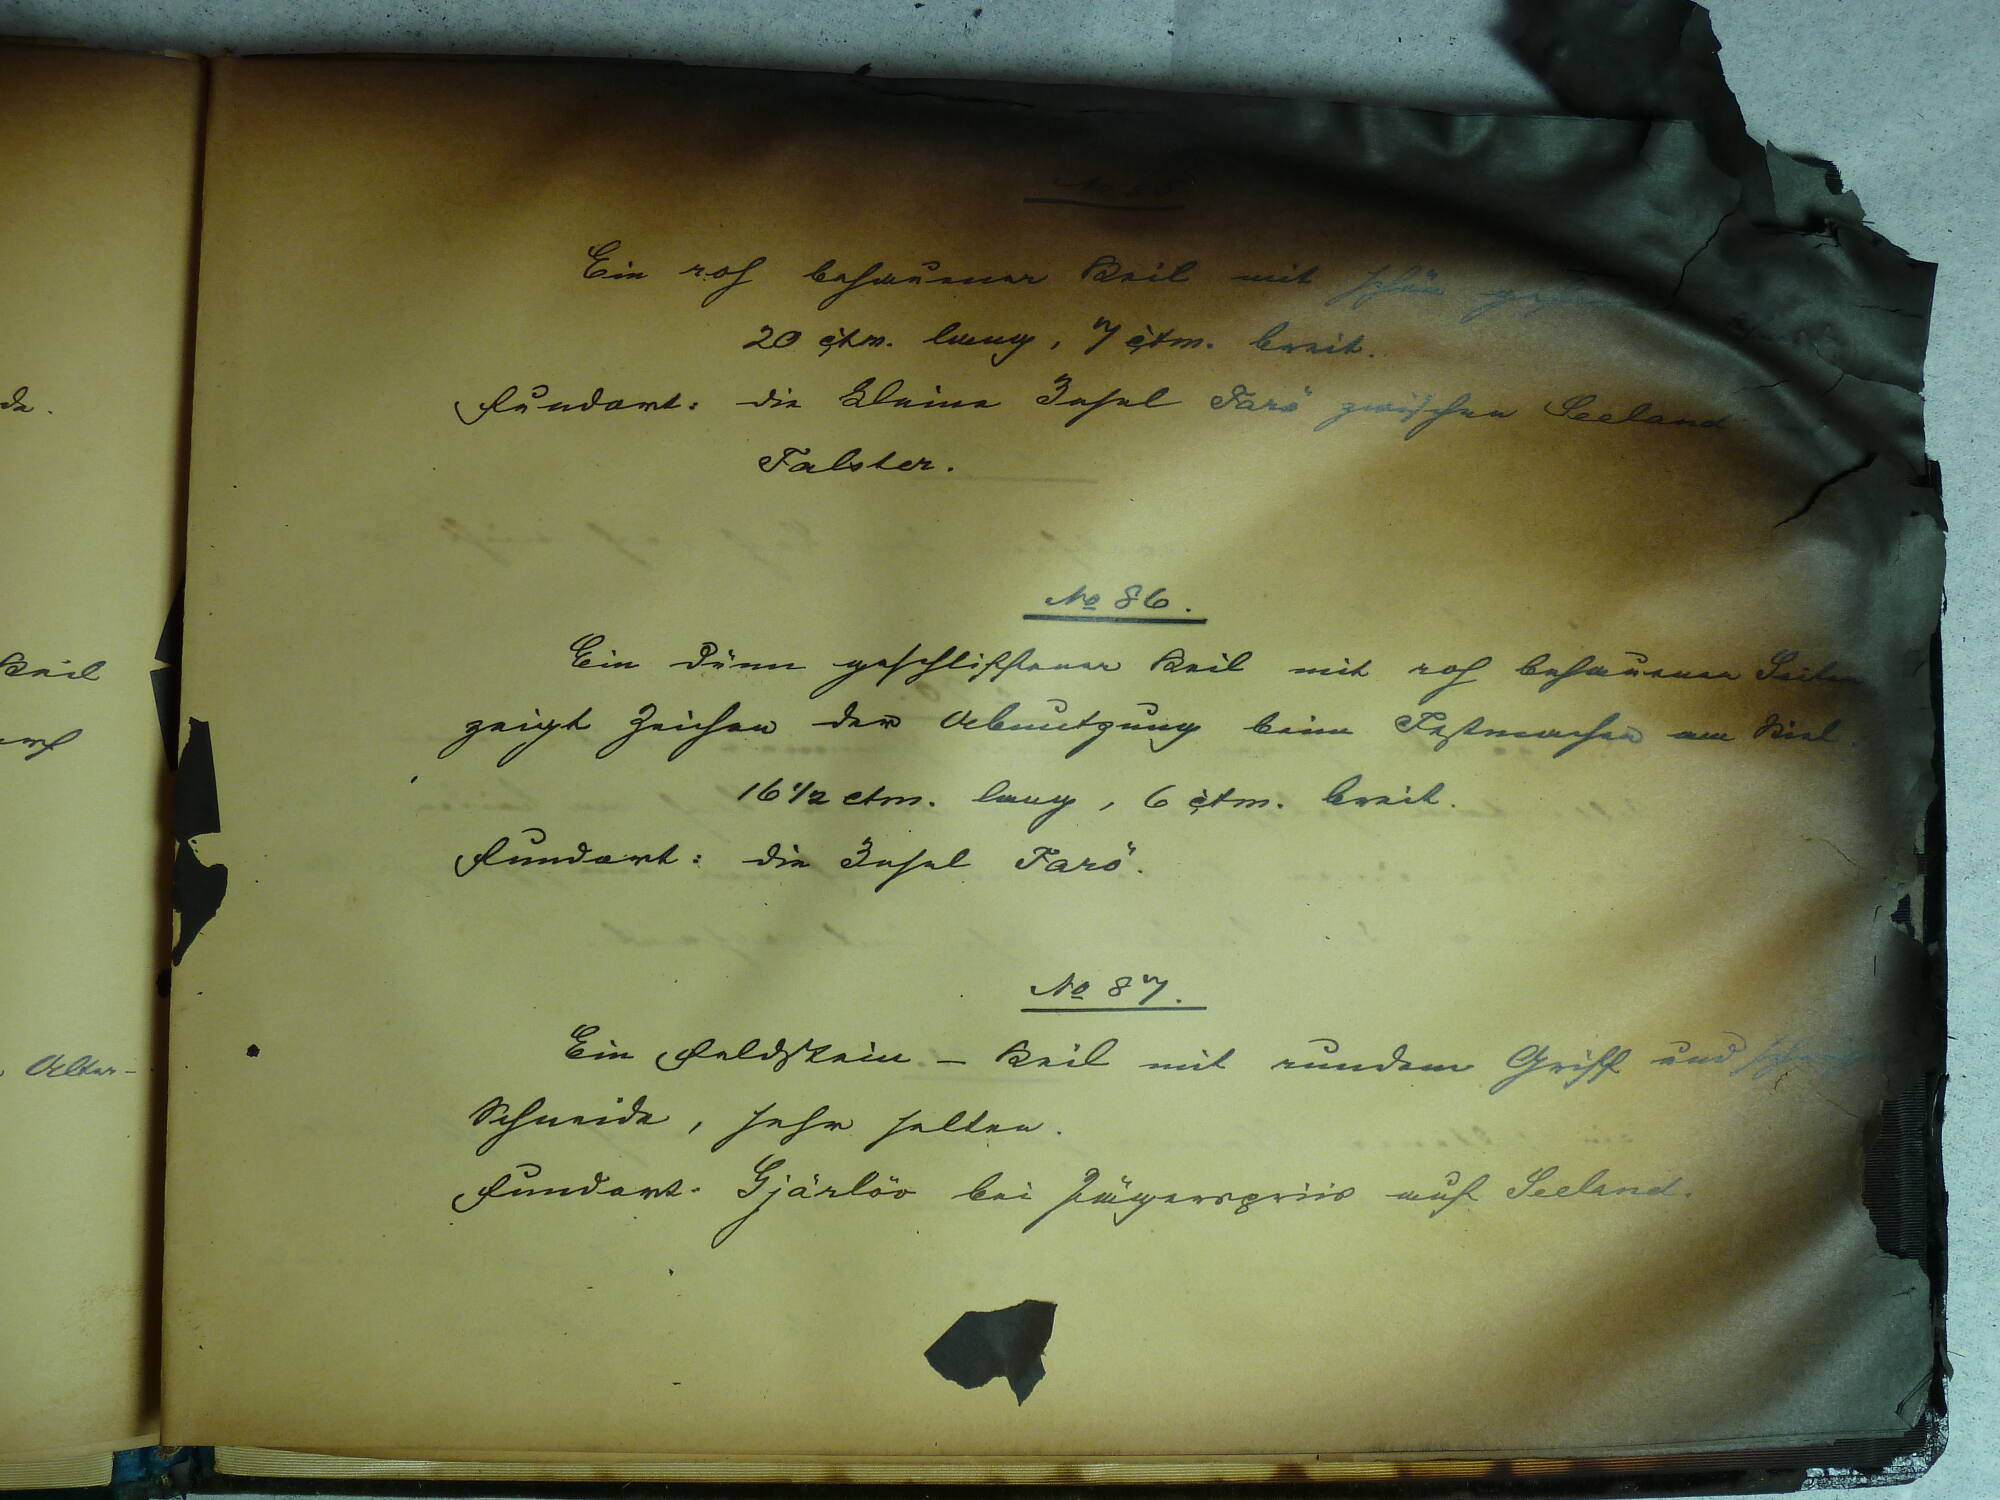 № 85
Ein roh behauener Keil mit schön
20 ctm. lang, 7 ctm. breit.
Fundort: die kleine Insel Farö zwischen Seeland
Falster.
№ 86.
Ein dünn geschliffener Keil mit roh behauenen Seiten
zeigt Zeichen der Abnutzung beim Festmachen am Stiel.
16 1/2 ctm. lang, 6 ctm. breit.
Fundort: die Insel Farö.
№ 87.
Ein Feldstein - Keil mit rundem Griff und
Schneide, sehr selten.
Fundort: Gjärlöv bei Jägerspriis auf Seeland.
de.
Keil
Alter-